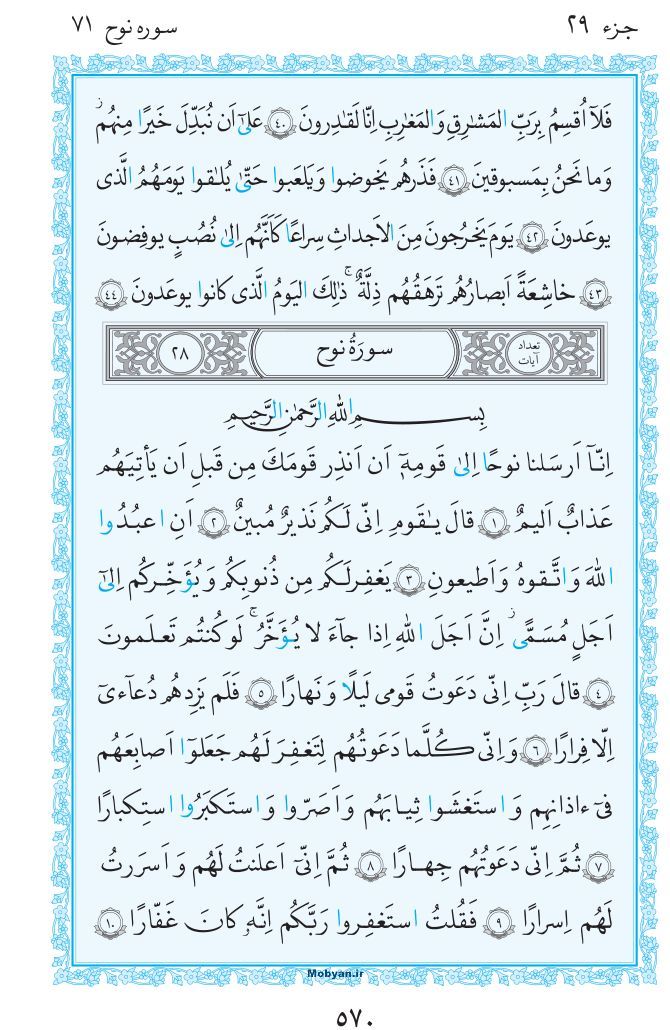 جزء ۲۹
سوره نوح ۷۱
فَلَآ اُقسِمُ بِرَبِّ المَشارِقِ وَالمَغارِبِ اِنّا لَقادِرونَ ۴۰ عَلىٰٓ اَن نُبَدِّلَ خَيرًا مِنهُم
وَما نَحنُ بِمَسبوقينَ ۴۱ فَذَرهُم يَخوضوا وَيَلعَبوا حَتّىٰ يُلٰقوا يَومَهُمُ الَّذى
يوعَدونَ ۴۲ يَومَ يَخرُجونَ مِنَ الاَجداثِ سِراعًا كَاَنَّهُم اِلىٰ نُصُبٍ يوفِضونَ
۴۳ خاشِعَةً اَبصارُهُم تَرهَقُهُم ذِلَّةٌ ۚ ذٰلِكَ اليَومُ الَّذى كانوا يوعَدونَ ۴۴
تعداد آیات سورَةُ نوح ۲۸
بِسمِ اللهِ الرَّحمٰنِ الرَّحيمِ
اِنّآ اَرسَلنا نوحًا اِلىٰ قَومِهٖٓ اَن اَنذِر قَومَكَ مِن قَبلِ اَن يَأتِيَهُم
عَذابٌ اَليمٌ ۱ قالَ يٰقَومِ اِنّى لَكُم نَذيرٌ مُبينٌ ۲ اَنِ اعبُدُوا
اللهَ وَاتَّقوهُ وَاَطيعونِ ۳ يَغفِرلَكُم مِن ذُنوبِكُم وَيُؤَخِّركُم اِلىٰٓ
اَجَلٍ مُسَمًّى ۚ اِنَّ اَجَلَ اللهِ اِذا جآءَ لا يُؤَخَّرُ ۚ لَوكُنتُم تَعلَمونَ
۴ قالَ رَبِّ اِنّى دَعَوتُ قَومى لَيلًا وَنَهارًا ۵ فَلَم يَزِدهُم دُعآءىٓ
اِلّا فِرارًا ۶ وَاِنّى كُلَّما دَعَوتُهُم لِتَغفِرَ لَهُم جَعَلوٓا اَصابِعَهُم
فىٓ ءاذانِهِم وَاستَغشَوا ثِيابَهُم وَاَصَرّوا وَاستَكبَرُوا استِكبارًا
۷ ثُمَّ اِنّى دَعَوتُهُم جِهارًا ۸ ثُمَّ اِنّىٓ اَعلَنتُ لَهُم وَاَسرَرتُ
لَهُم اِسرارًا ۹ فَقُلتُ استَغفِروا رَبَّكُم اِنَّهٗ كانَ غَفّارًا ۱۰
Mobyan.ir
۵۷۰